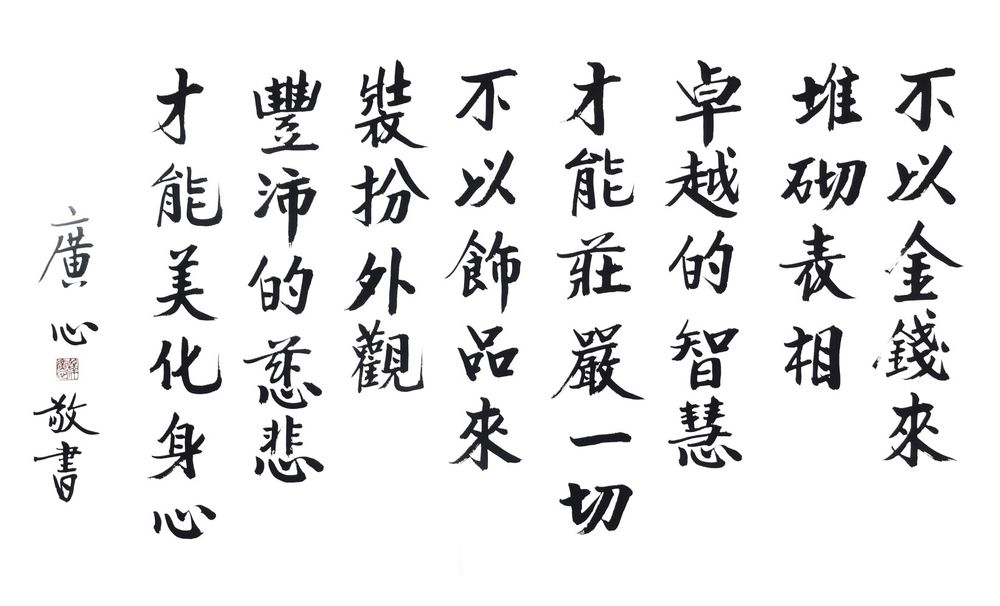 不以金錢來
堆砌表相
卓越的智慧
才能莊嚴一切
不以飾品來
裝扮外觀
豐沛的慈悲
才能美化身心
廣心
敬書